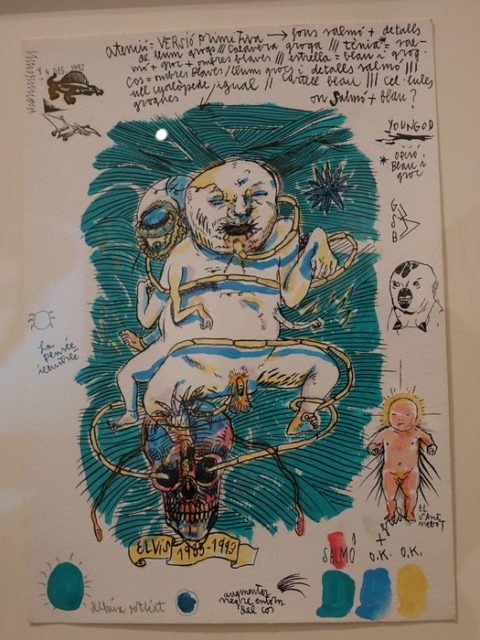 atenció: VERSIÓ PRIMITIVA → fons salmó + detalls
de llum grogs /// Calavera groga /// tènia* = sal-
mó + groc + ombres blaves /// estrella = blau i grog
cos = ombres blaves / llum grog i detalls salmó ///
ull cyclòpede igual // cartell blau /// cel·lules
grogues on salmó + blau?
DES. 1992
YOUNGOD
* opció.
Blau i
groc
G
S
B
La
pensée
ELVIS 1985-1993
EL
SANT
SALMÓ O.K. O.K.
augmentar
negre entorn
del cos